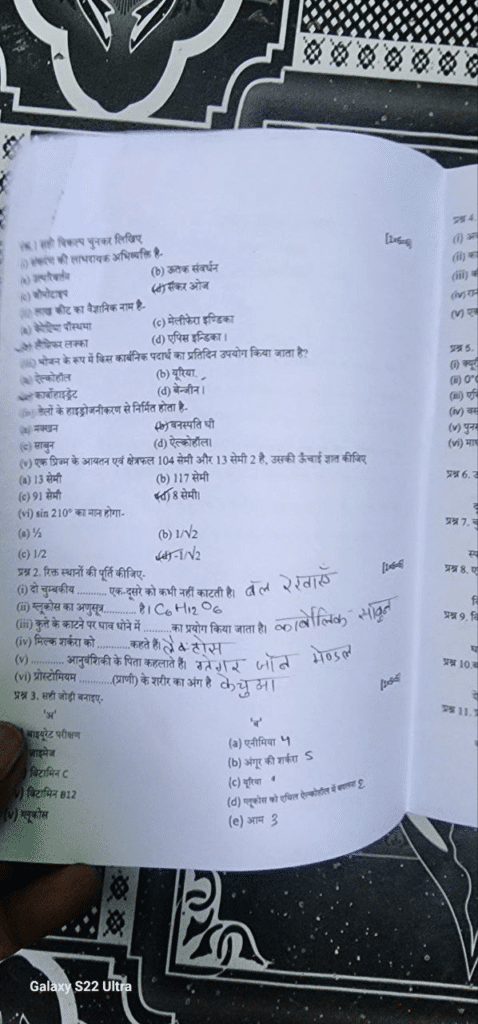 प्रश्न 1 सही विकल्प चुनकर लिखिए [1×6=6]
(i) संकरण की लाभदायक अभिव्यक्ति है-
(a) उत्परिवर्तन (b) ऊतक संवर्धन
(c) बीनोटाइप (d) संकर ओज
(ii) लाख कीट का वैज्ञानिक नाम है-
(c) मेलीफेरा इण्डिका
लैसिफर लक्का (d) एपिस इन्डिका।
(iii) भोजन के रूप में किस कार्बनिक पदार्थ का प्रतिदिन उपयोग किया जाता है?
(a) ऐल्कोहॉल (b) यूरिया.
कार्बोहाइड्रेट (d) बेन्जीन।
(iv) तेलों के हाइड्रोजनीकरण से निर्मित होता है-
(a) मक्खन (b) वनस्पति घी
(c) साबुन (d) ऐल्कोहॉल।
(v) एक प्रिज्म के आयतन एवं क्षेत्रफल 104 सेमी और 13 सेमी 2 है, उसकी ऊँचाई ज्ञात कीजिए
(a) 13 सेमी (b) 117 सेमी
(c) 91 सेमी (d) 8 सेमी।
(vi) sin 210° का मान होगा-
(a) ½ (b) 1/√2
(c) 1/2 (d) -1/√2
प्रश्न 2. रिक्त स्थानों की पूर्ति कीजिए- [1×6=6]
(i) दो चुम्बकीय .......... एक-दूसरे को कभी नहीं काटती है। बल रेखाएँ
(ii) ग्लूकोस का अणुसूत्र........... है। C6H12O6
(iii) कुत्ते के काटने पर घाव धोने में .........का प्रयोग किया जाता है। कार्बोलिक साबुन
(iv) मिल्क शर्करा को ...........कहते हैं। लैक्टोस
(v) ........... आनुवंशिकी के पिता कहलाते हैं। ग्रेगर जॉन मेण्डल
(vi) प्रोस्टोमियम ...........(प्राणी) के शरीर का अंग है केचुआ
प्रश्न 3. सही जोड़ी बनाइए- [1×5=5]
'अ' 'ब'
बाइयूरेट परीक्षण (a) एनीमिया 4
जाइमेज (b) अंगूर की शर्करा 5
विटामिन C (c) यूरिया
विटामिन B12 (d) ग्लूकोस को एथिल ऐल्कोहॉल में बदलना 2
(v) ग्लूकोस (e) आम 3
प्रश्न 4.
(i)
(ii)
(iii)
(iv)
(v)
प्रश्न 5.
(i)
(ii)
(iii)
(iv)
(v)
(vi)
प्रश्न 6.
प्रश्न 7.
प्रश्न 8.
प्रश्न 9.
प्रश्न 10.
प्रश्न 11.
Galaxy S22 Ultra